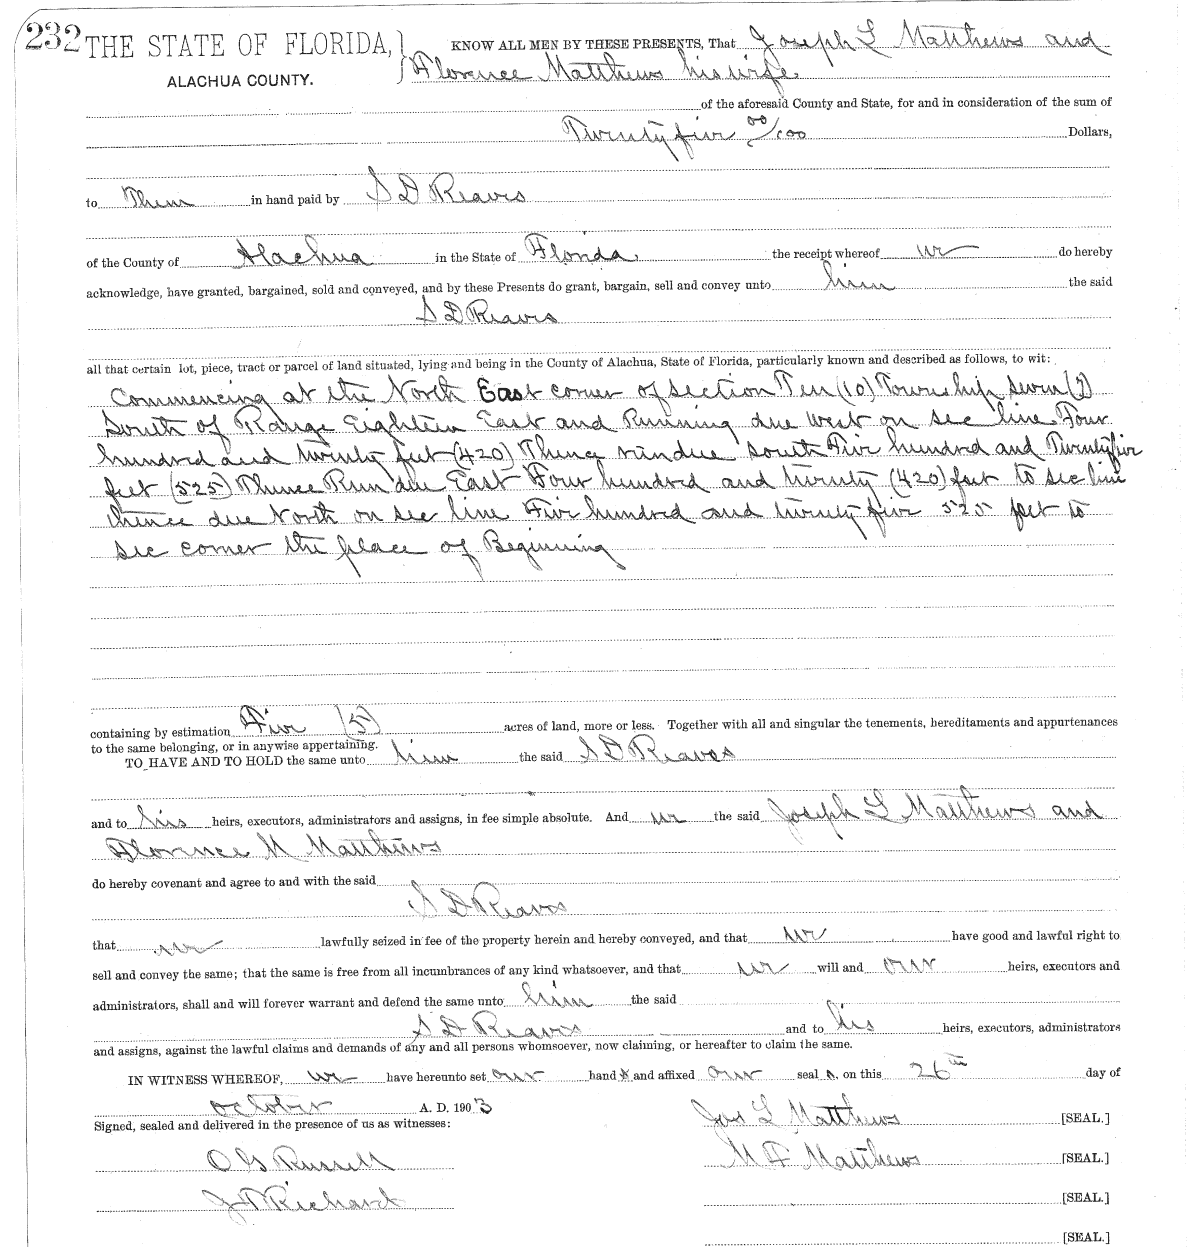 232 THE STATE OF FLORIDA, } KNOW ALL MEN BY THESE PRESENTS, That Joseph L Matthews and
ALACHUA COUNTY. Florence Matthews his wife
of the aforesaid County and State, for and in consideration of the sum of
Twenty five 00/100 Dollars,
to Them in hand paid by S D Reaves
of the County of Alachua in the State of Florida, the receipt whereof we do hereby
acknowledge, have granted, bargained, sold and conveyed, and by these Presents do grant, bargain, sell and convey unto him the said
S D Reaves
all that certain lot, piece, tract or parcel of land situated, lying and being in the County of Alachua, State of Florida, particularly known and described as follows, to wit:
Commencing at the North East corner of section Ten (10) Township seven (7)
South of Range Eighteen East and Running due west on sec line Four
hundred and twenty feet (420) Thence run due south Five hundred and Twenty five
feet (525) Thence Run due East Four hundred and twenty (420) feet to sec line
thence due North on sec line Five hundred and twenty five 525 feet to
sec corner the place of Beginning
containing by estimation Five (5) acres of land, more or less. Together with all and singular the tenements, hereditaments and appurtenances
to the same belonging, or in anywise appertaining.
TO HAVE AND TO HOLD the same unto him the said S D Reaves
and to his heirs, executors, administrators and assigns, in fee simple absolute. And we the said Joseph L Matthews and
Florence M Matthews
do hereby covenant and agree to and with the said
S D Reaves
that we lawfully seized in fee of the property herein and hereby conveyed, and that we have good and lawful right to
sell and convey the same; that the same is free from all incumbrances of any kind whatsoever, and that we will and our heirs, executors and
administrators, shall and will forever warrant and defend the same unto him the said
S D Reaves and to his heirs, executors, administrators
and assigns, against the lawful claims and demands of any and all persons whomsoever, now claiming, or hereafter to claim the same.
IN WITNESS WHEREOF, we have hereunto set our hand s and affixed our seal s. on this 26th day of
October A. D. 1903
Signed, sealed and delivered in the presence of us as witnesses: Jos L Matthews [SEAL.]
O G Russell M F Matthews [SEAL.]
J D Richard [SEAL.]
[SEAL.]